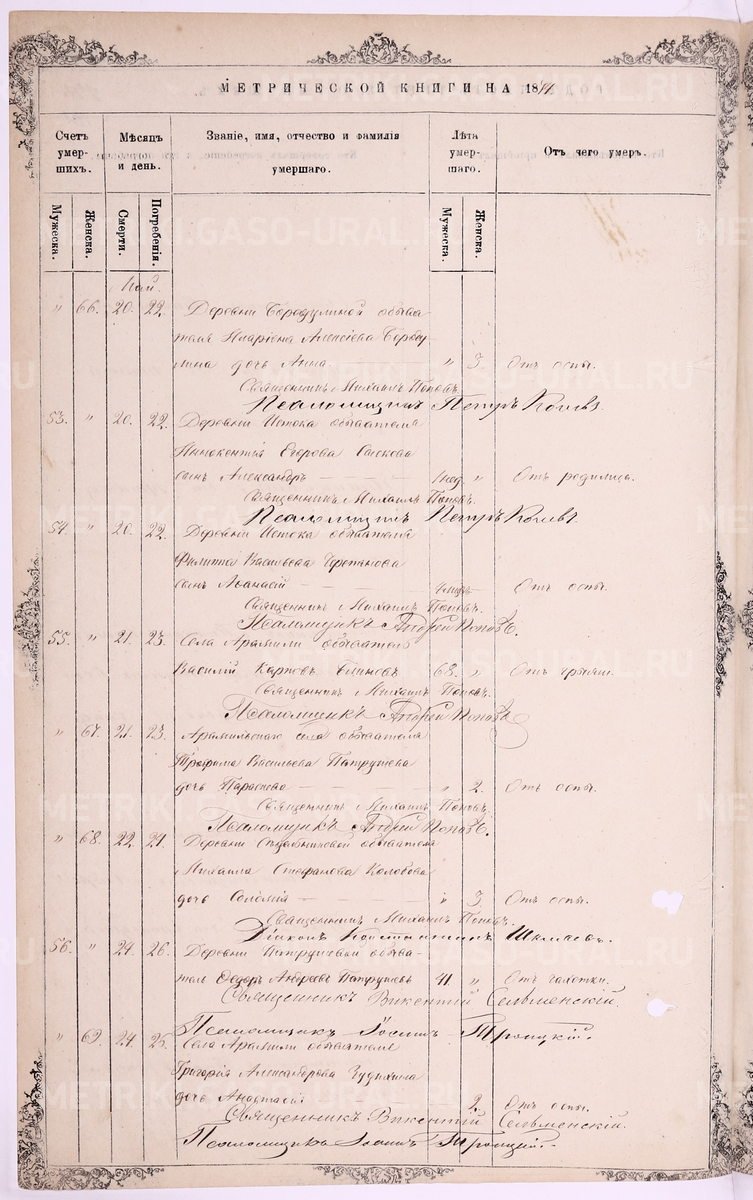 МЕТРИЧЕСКОЙ КНИГИ НА 18 ГОД
Счетъ умер-шихъ.
Мѣсяцъ и день.
Званіе, имя, отчество и фамилія умершаго.
Лѣта умер-шаго.
Отъ чего умеръ.
Мужеска.
Женска.
Смерти.
Погребенія.
Мужеска.
Женска.
Май.
" 66. 20. 22. Деревни Бородулиной обыва-
теля Иларіона Алексѣева Бороду-
лина дочь Анна " 3. Отъ оспы.
Священникъ Михаилъ Поповъ.
Псаломщикъ Петръ
53. " 20. 22. Деревни Истока обывателя
Иннокентія Егорова
сынъ Александръ 1 нед. " Отъ родимца.
Священникъ Михаилъ Поповъ.
Псаломщикъ Петръ
54. " 20. 22. Деревни Истока обывателя
Филиппа Васильева Черепанова
сынъ Аѳанасій Отъ оспы.
Священникъ Михаилъ Поповъ.
Псаломщикъ Андрей Поповъ.
55. " 21. 23. Села Арамили обыватель
Василій Карповъ 68. "
Священникъ Михаилъ Поповъ.
Псаломщикъ Андрей Поповъ
" 67. 21. 23. Арамильскаго села обывателя
Трофима Васильева Патрушева
дочь Параскева " 2. Отъ оспы.
Священникъ Михаилъ Поповъ.
Псаломщикъ Андрей Поповъ.
" 68. 22. 24. Деревни обывателя
Михаила Стефанова Колобова
дочь Соломія " 3. Отъ оспы.
Священникъ Михаилъ Поповъ.
Діаконъ Константинъ
56. " 24. 26. Деревни Патрушевой обыва-
тель Ѳедоръ Андреевъ Патрушевъ 41. " Отъ чахотки.
Священникъ Викентій Сельменскій.
Псаломщикъ Іосифъ Троицкій.
" 69. 24. 25. Села Арамили обывателя
Григорія Александрова
дочь Анастасія 2. Отъ оспы.
Священникъ Викентій Сельменскій.
Псаломщикъ Іосифъ Троицкій.
METRIKI.GASO-URAL.RU